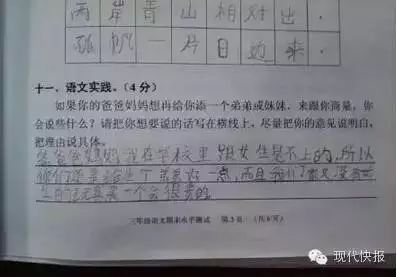 两岸青山相对出.
孤帆一片日边来.
十一、语文实践。(4分)
如果你的爸爸妈妈想再给你添一个弟弟或妹妹，来跟你商量，你
会说些什么？请把你想要说的话写在横线上，尽量把你的意见说明白，
把理由说具体。
爸爸妈妈我在学校里跟女生是不上的，所以
你们还是给生个弟弟好一点，而且我们
生的话一个会很贵的
三年级语文期末水平测试 第5页 (共6页)
现代快报